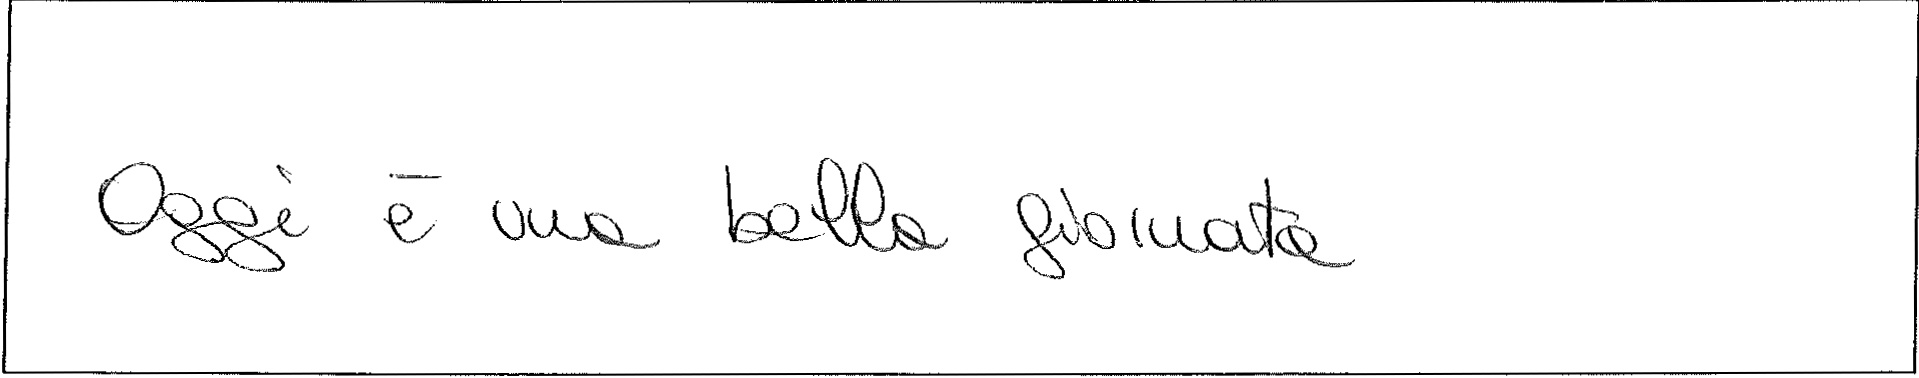 Oggi è una bella giornata